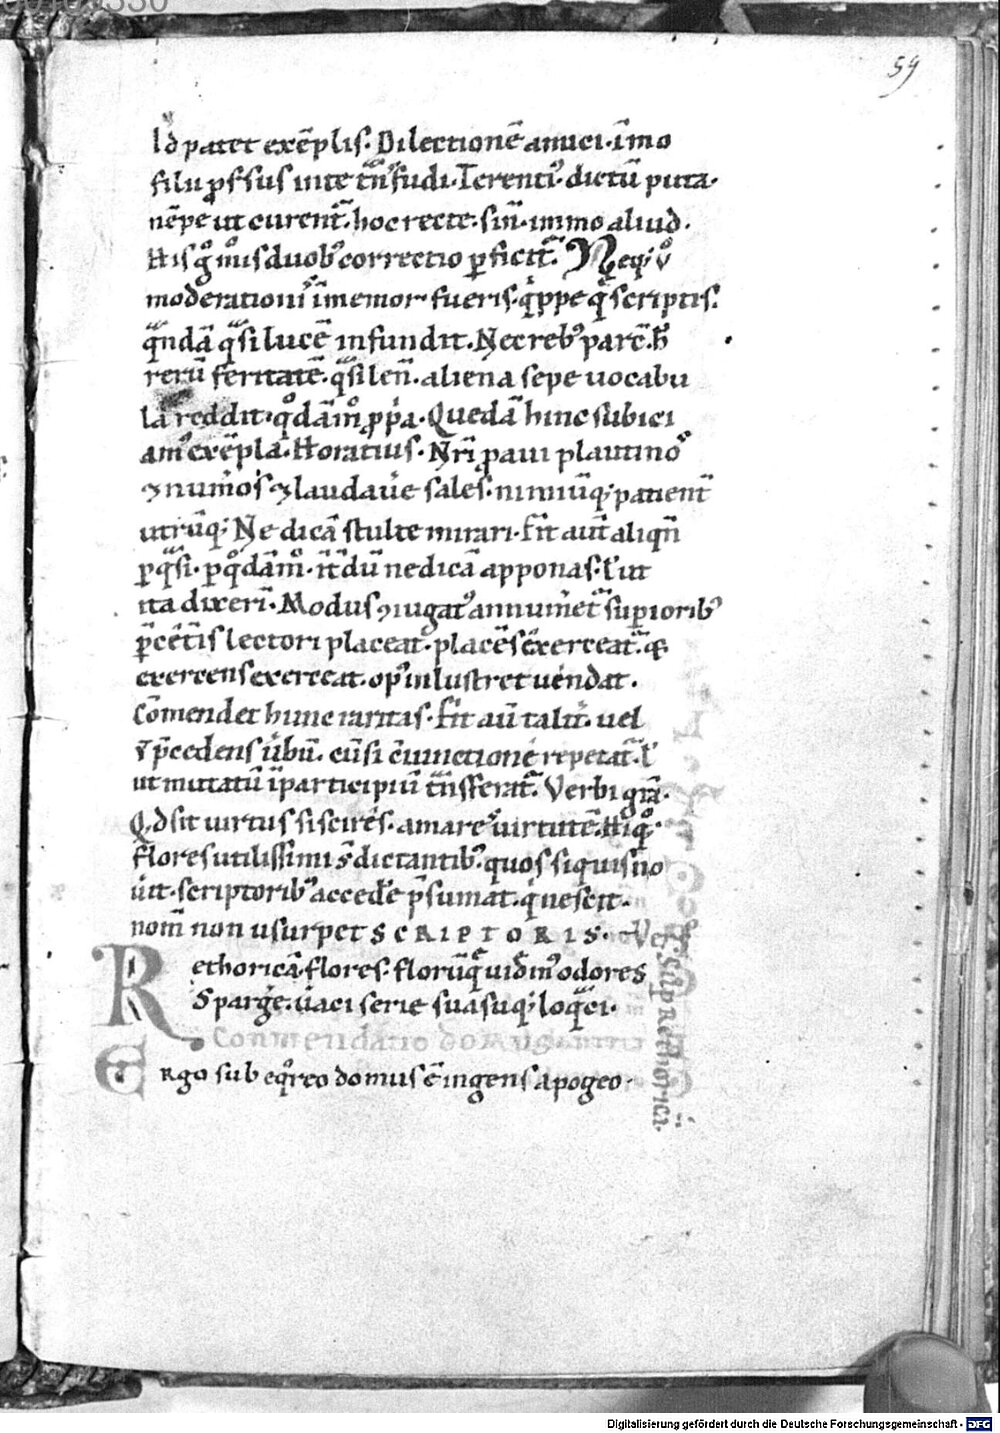 59
Id patet exēplis. Dilectionē amici. īmo
filii ꝓfsus in te tn̄sfudi. Terenti᷒. dictū puta.
nēpe ut curent̄. hoc recte. sim̄. immo aliud.
His duob᷒ correctio ꝑficit̄. Neq;
moderationi īmemor fueris. qͥppe q̄ scriptis.
qͣndā qͣsi lucē infundit. Nec reb᷒ parc̄. h̄
rerū feritatē. qͣsi len̄. aliena sepe uocabu
la reddit. qͦdāmͦ ꝓpͥa. Quedā hinc subici
am᷒ exēpla. Horatius. Nr̄i ꝓaui plautinoˢ
⁊ numͦos ⁊ laudauͤe sales. nimiūq; patient̄
utrūq; Ne dicā stulte mirari. Fit aut̄ aliqn̄
ꝑ qͣsi. ꝑ qͦdāmͦ. ne dicā apponas. ł ut
ita dixeri᷒. Modus ⁊iugat᷒ annumͤet̄ suꝑiorib᷒
p̄cēt̄is lectori placeat. placēs exerceat.
exercens exerceat. op᷒ inlustret uendat.
Cōmendet hunc raritas. Fit aū talit̄. uel
p̄cedens ūbū. cū si ⁊iunctione repetat̄. ł
ut mutatū ī participiū tn̄sferat̄. Verbi grā.
Qͥd sit uirtus si scires. amare uirtutē.
flores utilissimi s̄ dictantib᷒. quos siquis no
uit. scriptorib᷒ accedͤe p̄sumat. qͥ nescit.
nom̄ non usurpet SCRIPTORIS. Ve
Rethoricā flores. florūqͥ uidͥ mͦ odores
Sparge. uaci serie suasuq; loqͣci.
Conmendatio
Ergo sub eqͦreo domus ē ingens apogeo.
sup Rethorica.
Digitalisierung gefördert durch die Deutsche Forschungsgemeinschaft - DFG